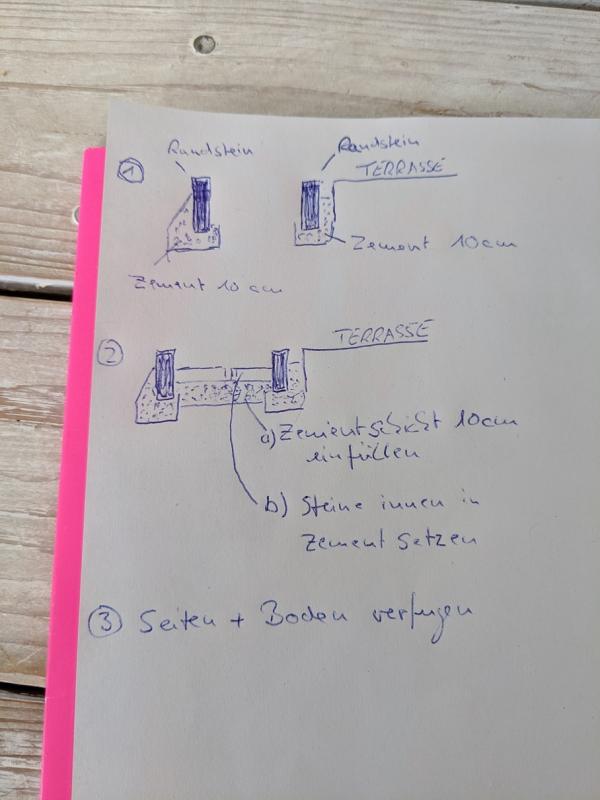 ① Randstein
Randstein
TERRASSE
Zement 10 cm
Zement 10 cm
② TERRASSE
a) Zementschicht 10cm
einfüllen
b) Steine innen in
Zement setzen
③ Seiten + Boden verfugen